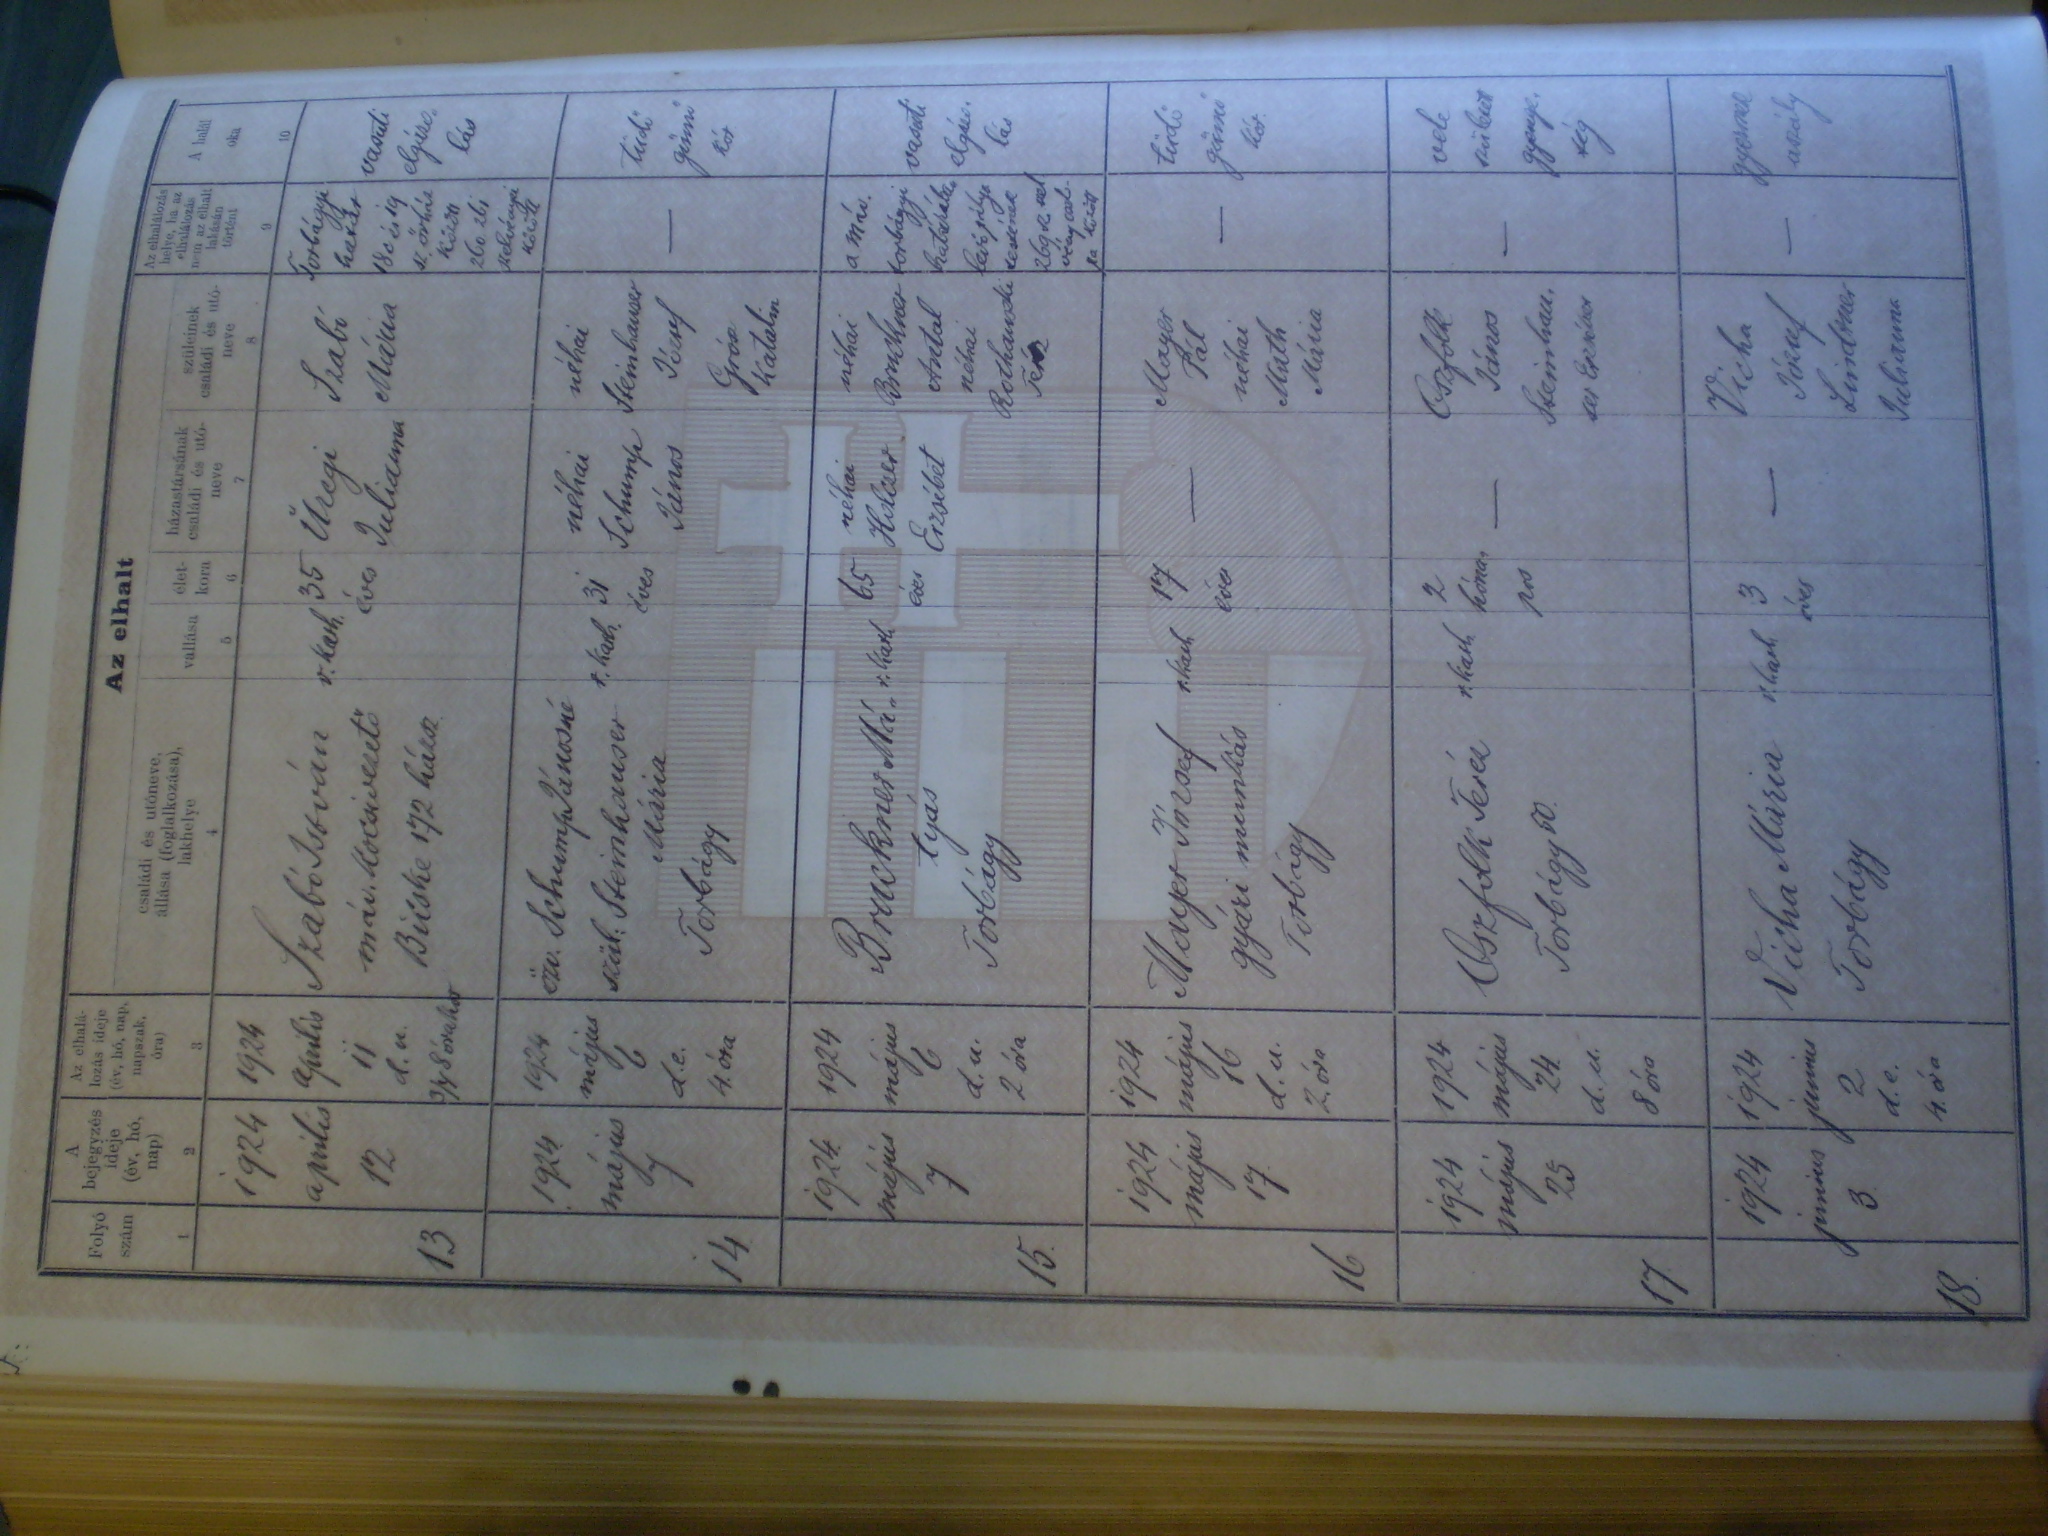 Az elhalt
Folyó
szám
A
bejegyzés
ideje
(év, hó,
nap)
Az elhalá-
lozás ideje
(év, hó, nap,
napszak,
óra)
családi és utóneve,
állása (foglalkozása),
lakhelye
vallása
élet-
kora
házastársának
családi és utó-
neve
szüleinek
családi és utó-
neve
Az elhalálozás
helye, ha az
elhalálozás
nem az elhalt
lakásán
történt
A halál
oka
1
2
3
4
5
6
7
8
9
10
13
1924
április
12
1924
április
11
d.u.
3/4 8 órakor
Szabó István
máv. mozdonyvezető
Bicske 172 házsz.
r. kath.
35
éves
Üregi
Julianna
Szabó
Mária
Torbágyi
határ
180 és 19
sz. őrház
között
260. 261
szelvényei
között
vasuti
elgázo-
lás
14
1924
május
7
1924
május
6
d.e.
4. óra
özv. Schump Jánosné
szül. Steinhauser
Mária
Torbágy
r. kath.
31
éves
néhai
Schump
János
néhai
Steinhauser
József
Gróz
Katalin
—
tüdő
gümő
kór
15.
1924
május
7
1924
május
6
d.u.
2 óra
Bruckner Má-
tyás
Torbágy
r. kath
65
éves
néhai
Holczer
Erzsébet
néhai
Bruckner
Antal
néhai
Rothauszki
Teréz
a máv.
torbágyi
határába
eső pálya
testének
269 sz. szel
vény cad-
ra között
vasuti
elgázo-
lás
16
1924
május
17.
1924
május
16
d.u.
2. óra
Mayer József
gyári munkás
Torbágy
r. kath
17
éves
—
Mayer
Pál
néhai
Muth
Mária
—
tüdő
gümő
kór.
17.
1924
május
25
1924
május
24
d.u.
8 óra
Oszfolk Teréz
Torbágy 50.
r. kath
2
hóna-
pos
—
Oszfolk
János
Steinhau-
ser Erzsébet
—
vele
született
gyenge-
ség
18.
1924
junius
3
1924
junius
2
d.e.
4. óra
Vicha Mária
Torbágy
r. kath
3
éves
—
Vicha
József
Lindner
Julianna
—
gyermek
aszály